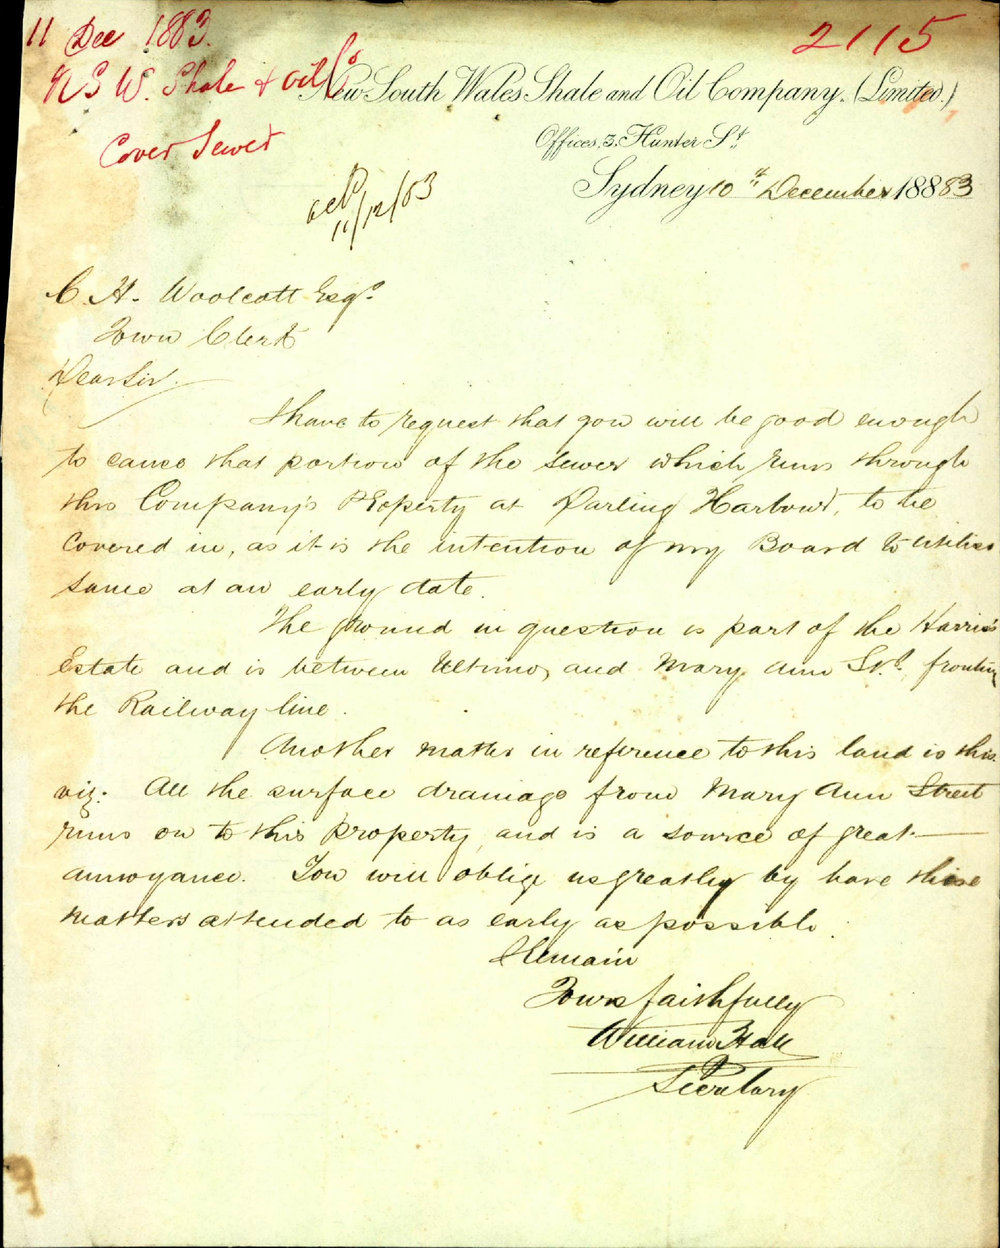 11 Dec 1883.
2115
N S W. Shale & Oil Co
New South Wales Shale and Oil Company. (Limited.)
Cover Sewer
Offices, 3. Hunter St.
Sydney 10th December 1883
11/12/83
C. H. Woolcott Esqr.
Town Clerk
Dear Sir.
I have to request that you will be good enough
to cause that portion of the sewer which runs through
this Company's Property at Darling Harbour, to be
covered in, as it is the intention of my Board to utilise
same at an early date.
The ground in question is part of the Harris
Estate and is between Ultimo, and Mary Ann Sts. fronting
the Railway line.
Another matter in reference to this land is this
viz. All the surface drainage from Mary Ann Street
runs on to this property, and is a source of great
annoyance. You will oblige us greatly by have these
matters attended to as early as possible.
I remain
Yours faithfully
William Hall
Secretary